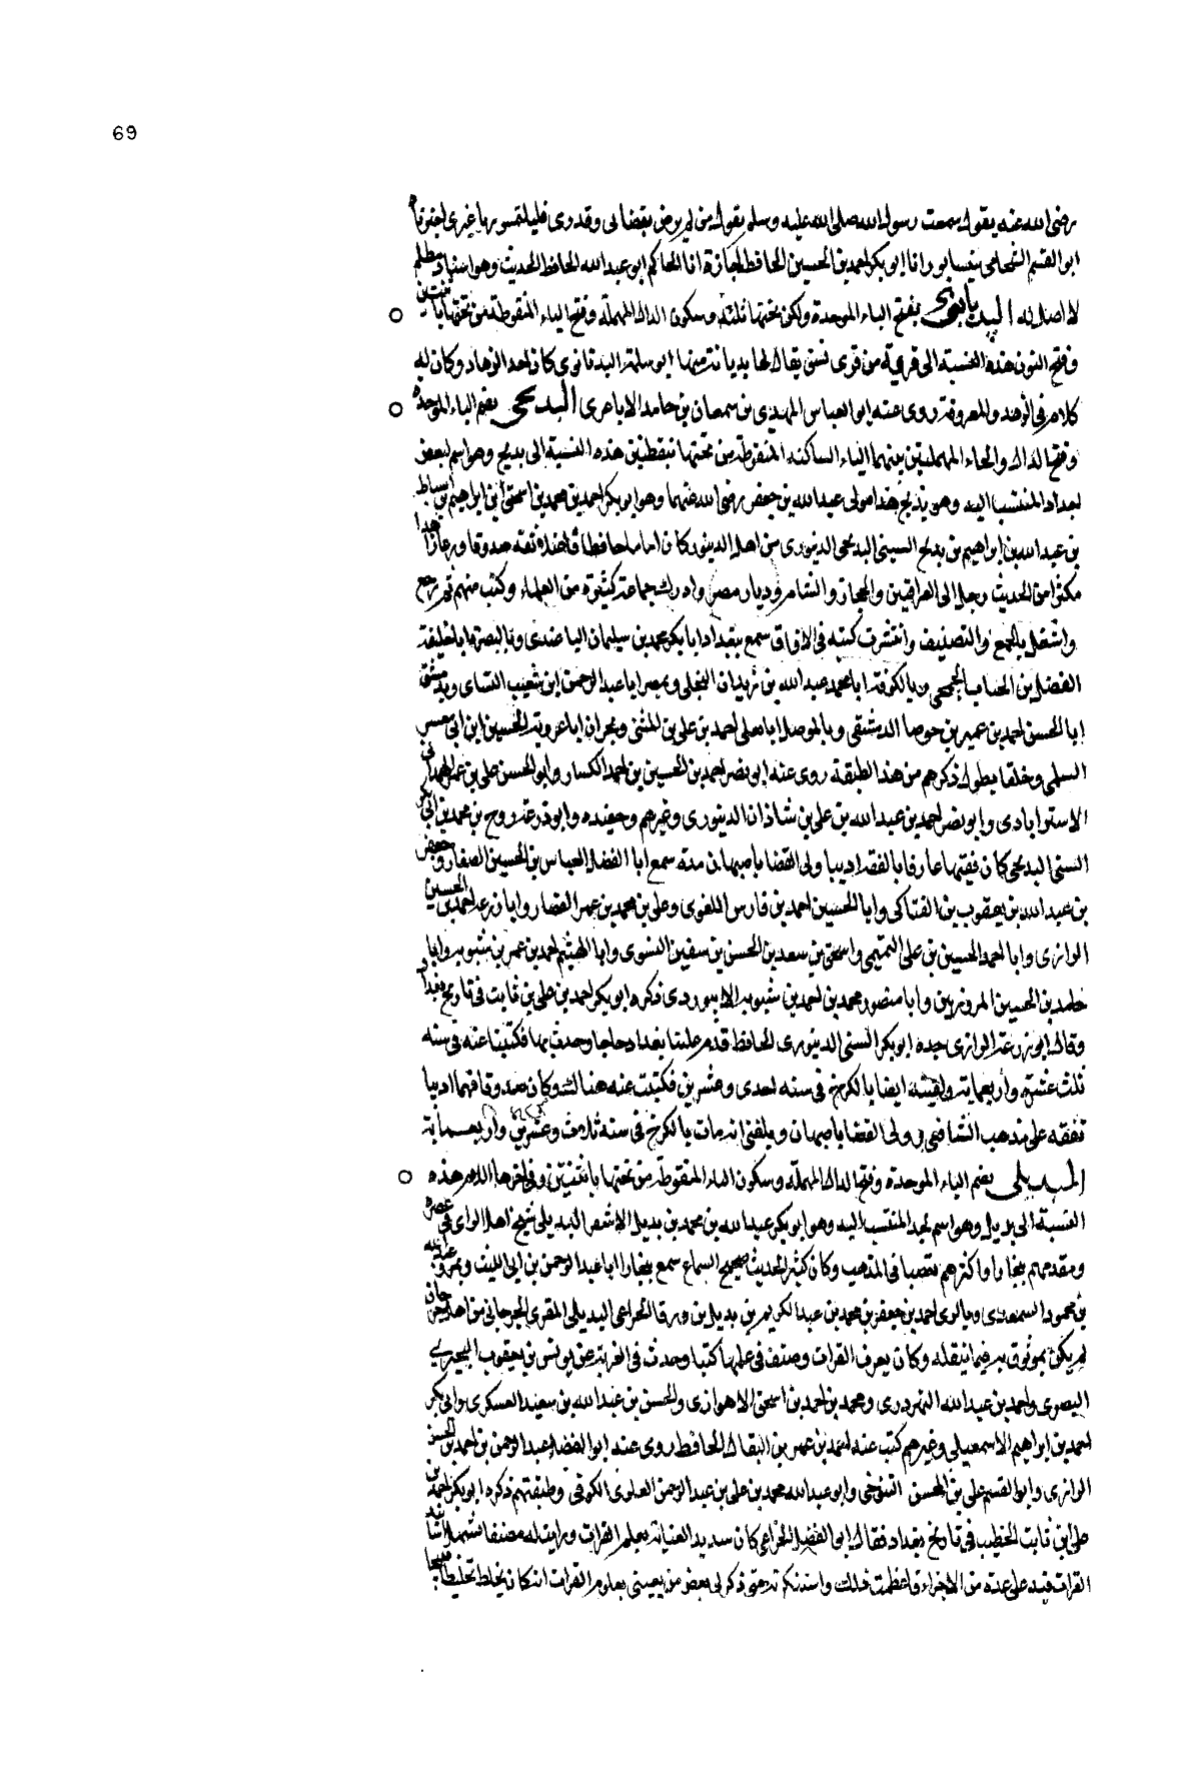 69
رضى الله عنه يقول سمعت رسول الله صلى الله عليه وسلم يقول من لم يرض بقضائى وقدرى فليلتمس ربا غيرى اخبرناه
ابو القسم الشحامى بنيسابور انا ابو بكر احمد بن الحسين الحافظ اجازة انا الحاكم ابو عبد الله الحافظ الحديث وهو اسناد مظلم
لا اصل له البديانوى بفتح الباء الموحدة وسكون الدال المهملة وفتح الياء المنقوطة من تحتها باثنتين
وفتح النون هذه النسبة الى قرية من قرى نسف يقال لها بديانة منها ابو سلمة البديانوى كان احد الزهاد وكان له
كلام فى الزهد والمعروفة روى عنه ابو العباس المهدى بن سمعان بن حامد الاباعرى البديحى بضم الباء الموحدة
وفتح الدال والحاء المهملتين بينهما الياء الساكنة المنقوطة من تحتها بنقطتين هذه النسبة الى بديح وهو اسم لبعض
اجداد المنتسب اليه وهو بديح هذا مولى عبد الله بن جعفر رضى الله عنهما وهو ابو بكر احمد بن محمد بن اسحق بن ابراهيم بن اسباط
بن عبد الله بن ابراهيم بن بديح السنى البديحى الدينورى من اهل الدينور كان اماما حافظا فاضلا ثقة صدوقا ورعا زاهدا
مكثرا من الحديث رحل الى العراقين والحجاز والشام وديار مصر وادرك جماعة كثيرة من العلماء وكتب منهم ثم رجع
واشتغل بالجمع والتصنيف وانتشرت كتبه فى الافاق سمع ببغداد ابا بكر محمد بن سليمان الباغندى وبالبصرة ابا خليفة
الفضل بن الحباب الجمحى وبالكوفة ابا محمد عبد الله بن زيدان البجلى وبمصر ابا عبد الرحمن بن شعيب النساى وبدمشق
ابا الحسن احمد بن عمير بن جوصا الدمشقى وبالموصل ابا يعلى احمد بن على بن المثنى وبحران ابا عروبة الحسين ابن ابى معشر
السلمى وخلقا يطول ذكرهم من هذا الطبقة روى عنه ابو نصر احمد بن الحسين بن احمد الكسار وابو الحسن على بن عمر الهمدانى
الاستراباذى وابو نصر احمد بن عبد الله بن على بن شاذان الدينورى وغيرهم وحفيده وابو زرعة روح بن محمد بن ابى بكر
السنى البديحى كان فقيها عارفا بالفقه اديبا ولى القضا باصبهان مدة سمع ابا الفضل العباس بن الحسين الصفار وجعفر
بن عبد الله بن يعقوب بن الفناكى وابا الحسين احمد بن فارس اللغوى وعلى بن محمد بن عمر القصار وابا زرعة احمد بن الحسين
الرازى وابا احمد الحسين بن على التميمى واسحق بن سعد بن الحسن بن سفين النسوى وابا الهيثم احمد بن عمر بن شبويه وابا
حامد بن الحسين المروزيين وابا منصور محمد بن احمد بن شبويه الابيوردى ذكره ابو بكر احمد بن على بن ثابت فى تاريخ بغداد
وقال ابو زرعة الرازى جده ابو بكر السنى الدينورى الحافظ قدم علينا بغداد حاجا وحدث بها فكتبنا عنه فى سنه
ثلث عشرة وأربعماية ولقيته ايضا بالكرخ فى سنه احدى وعشرين فكتبت عنه هنالك وكان صدوقا فهما اديبا
تفقه على مذهب الشافعى وولى القضا باصبهان وبلغنى انه مات بالكرخ فى سنة ثلاث وعشرين واربعماية
البديلى بضم الباء الموحدة وفتح الدال المهملة وسكون الياء المنقوطة من تحتها باثنتين وفى اخرها اللام هذه
النسبة الى بديل وهو اسم لجد المنتسب اليه وهو ابو بكر عبد الله بن محمد بن بديل الاشعر البديلى شيخ اهل الراى فى عصره
ومقدمهم ببخارا واكثرهم تعصبا فى المذهب وكان كثير الحديث صحيح السماع سمع ببخارا ابا عبد الرحمن بن ابى الليث وبمرو عبد الله
بن محمود السعدى وبالرى احمد بن جعفر بن محمد بن عبد الكريم بن بديل بن ورقا الخزاعى البديلى المقرى الجرجانى من اهل جرجان
لم يكن بموثوق به فيما ينقله وكان يعرف القرات وصنف فى علمها كتبا وحدث فى الغربة عن يونس بن يعقوب البحيرى
البصرى واحمد بن عبد الله النهرديرى ومحمد بن احمد بن اسحق الاهوازى والحسن بن عبد الله بن سعيد العسكرى وابى بكر
احمد بن ابراهيم الاسمعيلى وغيرهم كتب عنه احمد بن عمر بن البقال الحافظ روى عنه ابو الفضل عبد الرحمن بن احمد بن الحسن
الرازى وابو القسم على بن المحسن التنوخى وابو عبد الله محمد بن على بن عبد الرحمن العلوى الكوفى وطبقتهم ذكره ابو بكر احمد بن
على بن ثابت الخطيب فى تاريخ بغداد فقال ابو الفضل الخزاعى كان شديد العناية بعلم القرات ورايت له مصنفا
القرات فيه على عدة من الاجزاء فاعظمت ذلك واستنكرته حتى ذكر لى بعض من يعتنى بعلوم القرات انه كان يخلط تخليطا قبيحا